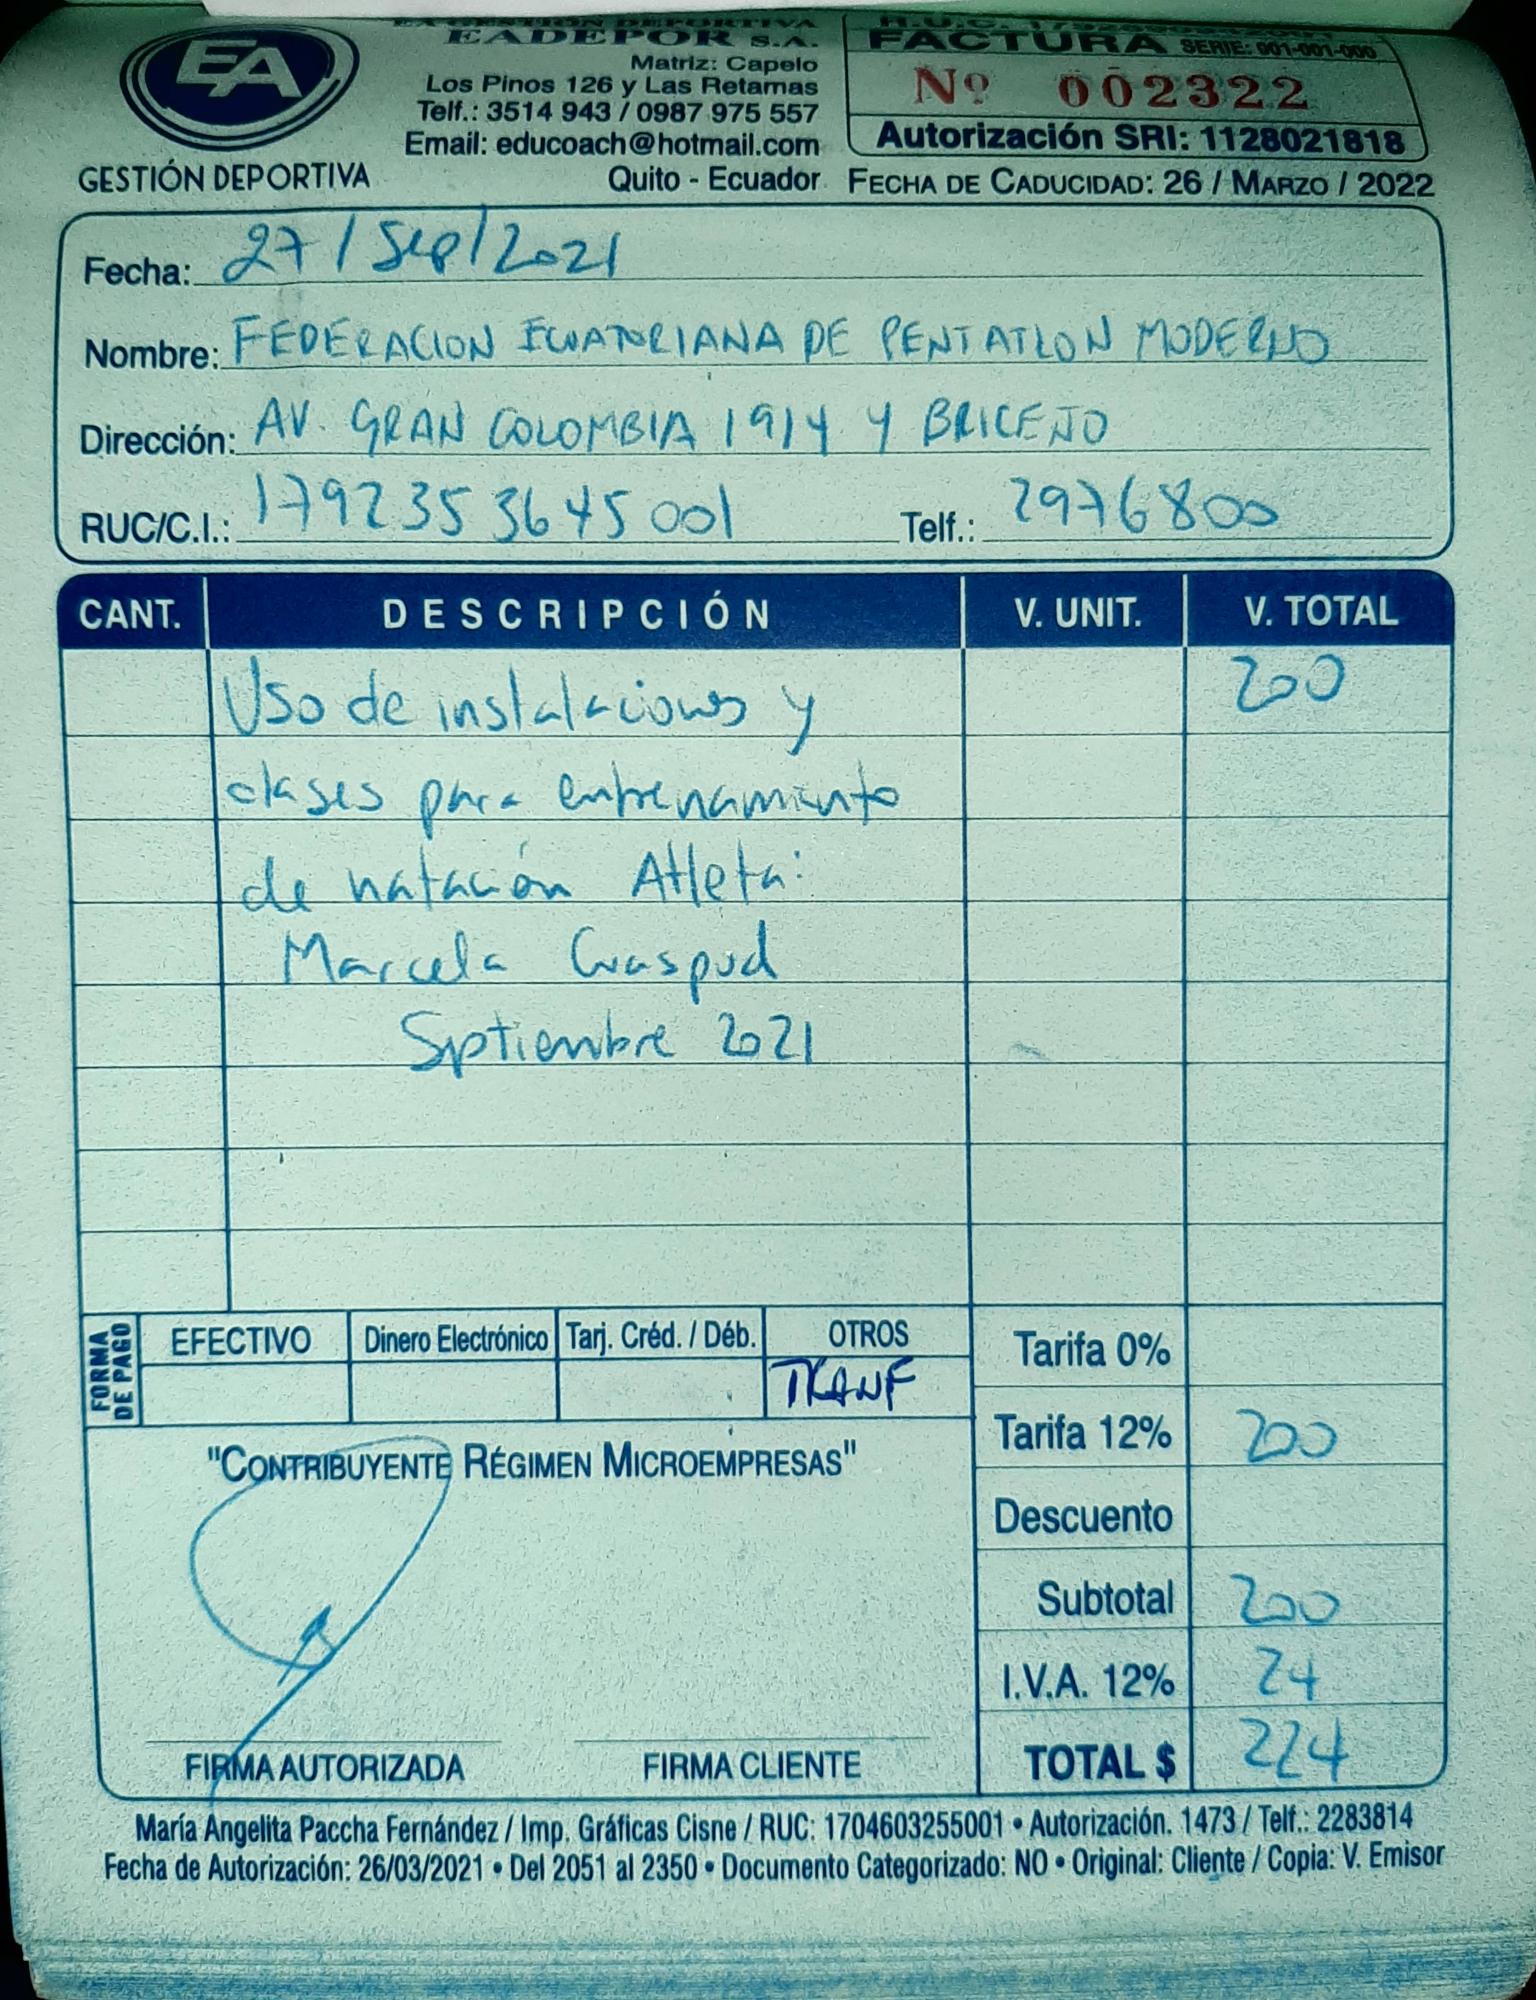 EA
GESTIÓN DEPORTIVA
EADEPOR S.A.
Matriz: Capelo
Los Pinos 126 y Las Retamas
Telf.: 3514 943 / 0987 975 557
Email: educoach@hotmail.com
Quito - Ecuador
FACTURA SERIE: 001-001-000
Nº 002322
Autorización SRI: 1128021818
FECHA DE CADUCIDAD: 26 / MARZO / 2022
Fecha: 27/Sep/2021
Nombre: FEDERACION ECUATORIANA DE PENTATLON MODERNO
Dirección: AV. GRAN COLOMBIA 1914 Y BRICEÑO
RUC/C.I.: 1792353645001 Telf.: 2976800
CANT. DESCRIPCIÓN V. UNIT. V. TOTAL
Uso de instalaciones y 200
clases para entrenamiento
de natación Atleta:
Marcela Cuaspud
Septiembre 2021
FORMA DE PAGO EFECTIVO Dinero Electrónico Tarj. Créd. / Déb. OTROS
TRANF
Tarifa 0%
Tarifa 12% 200
Descuento
Subtotal 200
I.V.A. 12% 24
TOTAL $ 224
"CONTRIBUYENTE RÉGIMEN MICROEMPRESAS"
FIRMA AUTORIZADA FIRMA CLIENTE
María Angelita Paccha Fernández / Imp. Gráficas Cisne / RUC: 1704603255001 • Autorización. 1473 / Telf.: 2283814
Fecha de Autorización: 26/03/2021 • Del 2051 al 2350 • Documento Categorizado: NO • Original: Cliente / Copia: V. Emisor